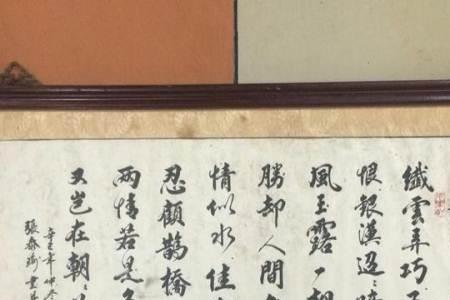 纖雲弄巧
恨銀漢迢〻
風玉露一相
勝却人間
情似水佳
忍顧鵲橋
兩情若是
又豈在朝〻
辛亥年仲冬
張春